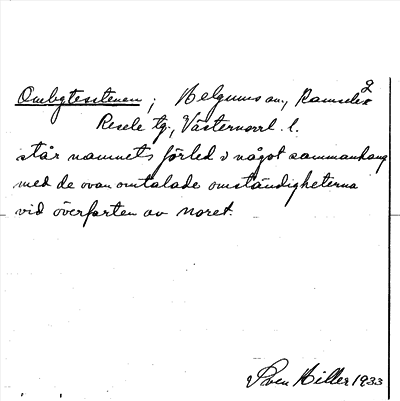 Ombytesstenen; Helgums sn., Ramsele o.
Resele tg., Västernorrl. l.
står namnets förled i något sammanhang
med de ovan omtalade omständigheterna
vid överfarten av noret.
Sven Hiller 1933